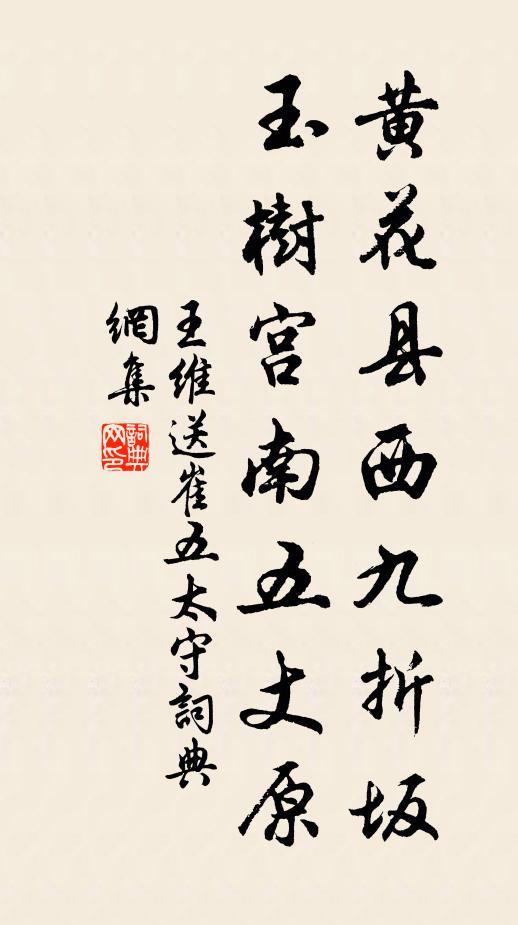 黄花县西九折坂
玉樹宫南五丈原
王维送崔五太守詞典
網集
詞典
网印